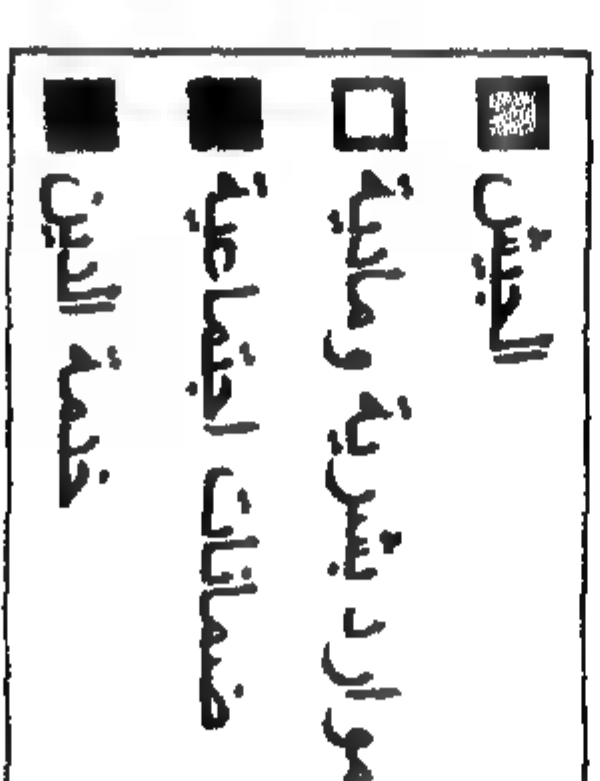 الجيش
موارد بشرية ومالية
ضمانات اجتماعية
خدمة الدين